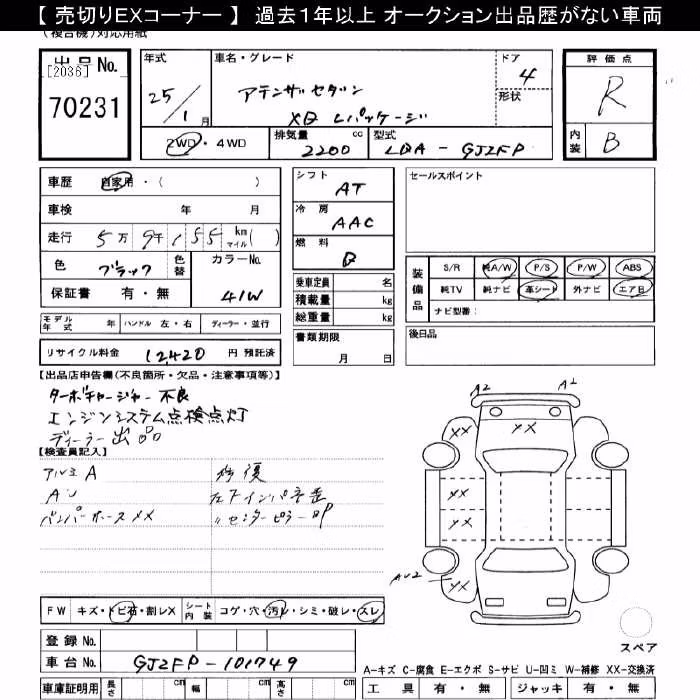 【 売切りEXコーナー 】 過去1年以上 オークション出品歴がない車両
(複合機)対応用紙
出品 No.
[2036]
70231
年式
25/1月
車名・グレード
アテンザセダン
XD Lパッケージ
ドア
4
形状
評価点
R
内装
B
2WD・4WD
排気量 cc
2200
型式
LDA-GJ2FP
車歴 自家用・( )
車検 年 月
走行 5万9千155 km マイル( )
色 ブラック
色替
カラーNo.
41W
保証書 有・無
モデル年式 年 ハンドル 左・右 ディーラー・並行
リサイクル料金 12,420 円 預託済
シフト
AT
冷房
AAC
燃料
乗車定員 名
積載量 kg
総重量 kg
書類期限
月 日
セールスポイント
装備品
S/R 純A/W P/S P/W ABS
純TV 純ナビ 革シート 外ナビ エアB
ナビ型番:
後日品
【出品店申告欄(不良箇所・欠品・注意事項等)】
ターボチャージャー不良
エンジンシステム点検点灯
ディーラー出品
【検査員記入】
アルミ A
AU
バンパーホース XX
修復
左下インパネ歪
〃センターピラー凹P
A2
A2
XX
XX
XX
XX
AU2
XX
スペア
FW キズ・トビ石・割レX
シート内装 コゲ・穴・汚レ・シミ・破レ・スレ
登録 No.
車台 No. GJ2FP-101749
車庫証明用 長さ cm 幅 cm 高さ cm
A-キズ C-腐食 E-エクボ S-サビ U-凹ミ W-補修 XX-交換済
工具 有・無 ジャッキ 有・無